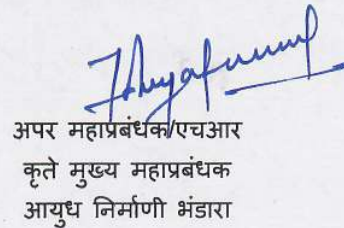 अपर महाप्रबंधक/एचआर
कृते मुख्य महाप्रबंधक
आयुध निर्माणी भंडारा